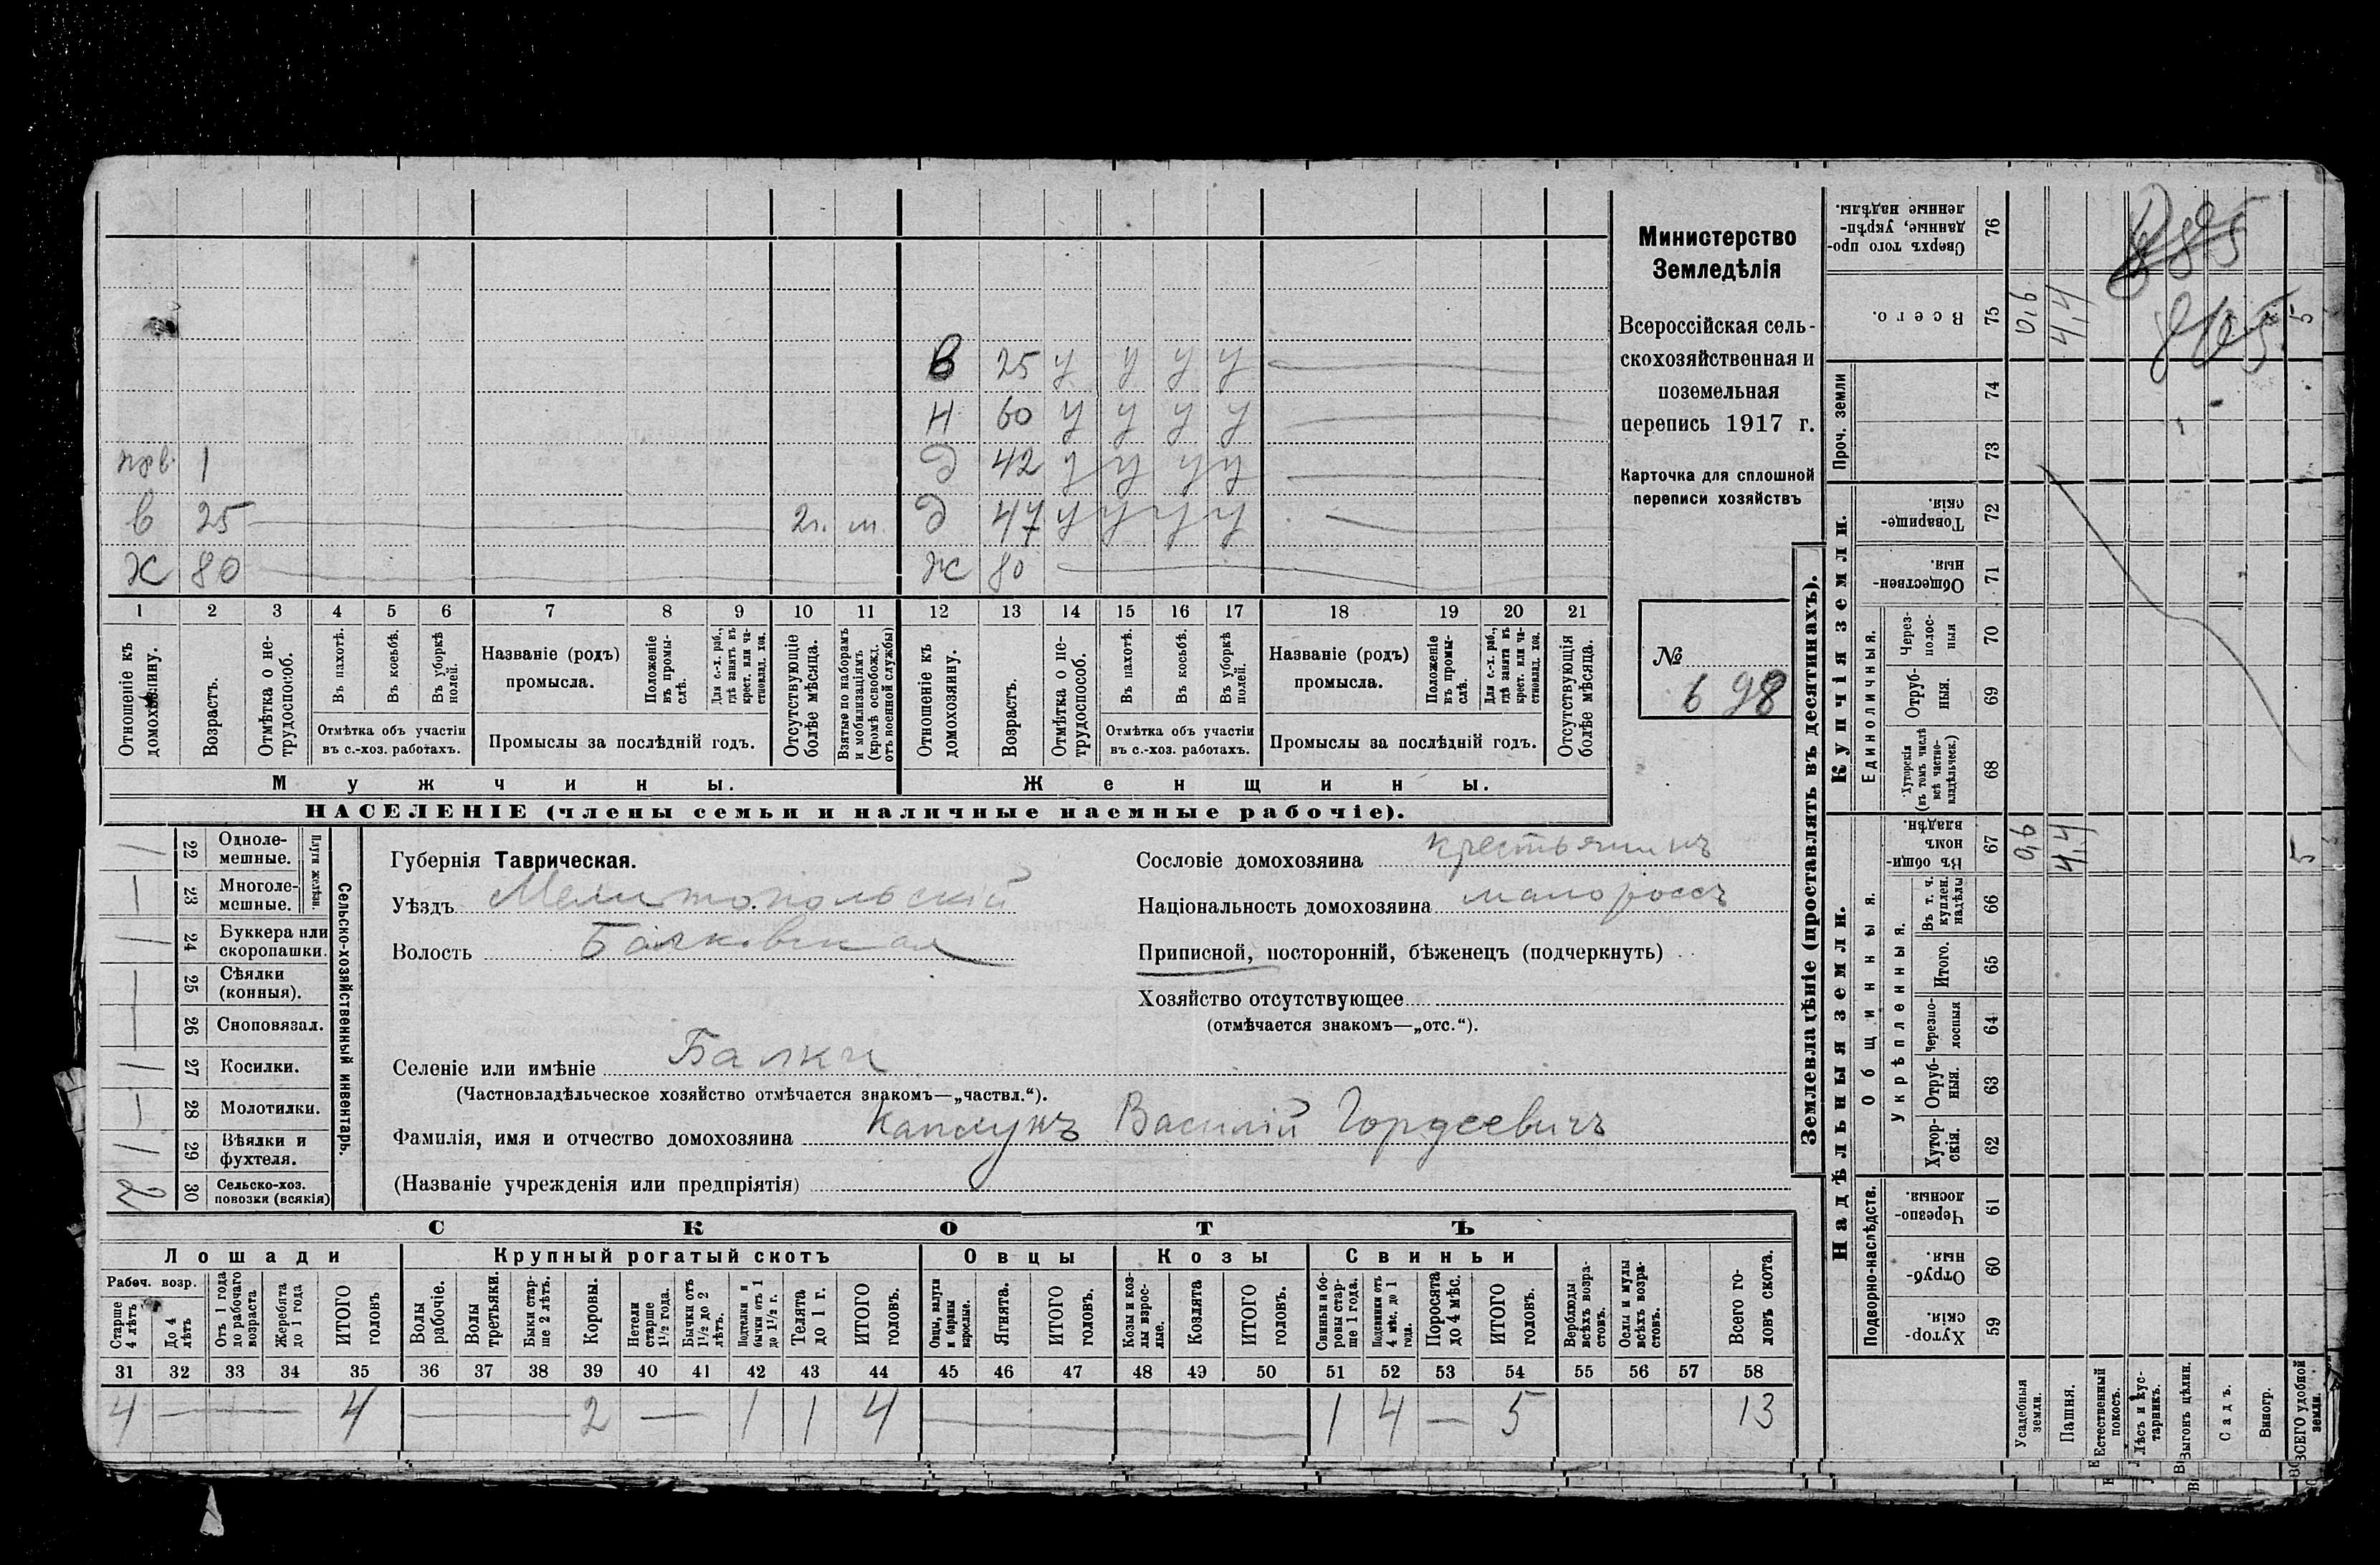 Министерство
Земледѣлія
Всероссійская сель-
скохозяйственная и
поземельная
перепись 1917 г.
Карточка для сплошной
переписи хозяйствъ
№
698
В 25 у у у у
Н 60 у у у у
1 Д 42 у у у у
в 25 2г. м. Д 47 у у у у
Ж 80 Ж 80
1 2 3 4 5 6 7 8 9 10 11 12 13 14 15 16 17 18 19 20 21
Отношеніе къ домохозяину.
Возрастъ.
Отмѣтка о не-трудоспособ.
Въ пахотѣ.
Въ косьбѣ.
Въ уборкѣ полей.
Отмѣтка объ участіи
въ с.-хоз. работахъ.
Названіе (родъ)
промысла.
Положеніе въ промы-слѣ.
Для с.-х. раб., гдѣ занятъ въ крест. или ча-стновлад. хоз.
Промыслы за послѣдній годъ.
Отсутствующіе болѣе мѣсяца.
Взятые по наборамъ и мобилизаціямъ (кромѣ освобожд. отъ военной службы)
Отношеніе къ домохозяину.
Возрастъ.
Отмѣтка о не-трудоспособ.
Въ пахотѣ.
Въ косьбѣ.
Въ уборкѣ полей.
Отмѣтка объ участіи
въ с.-хоз. работахъ.
Названіе (родъ)
промысла.
Положеніе въ промы-слѣ.
Для с.-х. раб., гдѣ занята въ крест. или ча-стновлад. хоз.
Промыслы за послѣдній годъ.
Отсутствующія болѣе мѣсяца.
Мужчины.
Женщины.
НАСЕЛЕНІЕ (члены семьи и наличные наемные рабочіе).
Сельско-хозяйственный инвентарь.
Плуги желѣзн.
1 22 Одноле-мешные.
— 23 Многоле-мешные.
1 24 Буккера или скоропашки.
— 25 Сѣялки (конныя).
— 26 Сноповязал.
1 27 Косилки.
— 28 Молотилки.
1 29 Вѣялки и фухтеля.
2 30 Сельско-хоз. повозки (всякія)
Губернія Таврическая.
Уѣздъ Мелитопольскій
Волость Балковская
Сословіе домохозяина крестьянинъ
Національность домохозяина малороссъ
Приписной, посторонній, бѣженецъ (подчеркнуть)
Хозяйство отсутствующее
(отмѣчается знакомъ—„отс.“).
Селеніе или имѣніе Балки
(Частновладѣльческое хозяйство отмѣчается знакомъ—„частвл.“).
Фамилія, имя и отчество домохозяина Каплунъ Василій Гордеевичъ
(Названіе учрежденія или предпріятія)
СКОТЪ
Лошади Крупный рогатый скотъ Овцы Козы Свиньи
Рабоч. возр.
Старше 4 лѣтъ
До 4 лѣтъ
Отъ 1 года до рабочаго возраста
Жеребята до 1 года
ИТОГО головъ
Волы рабочіе.
Волы третьяки.
Быки стар-ше 2 лѣтъ.
Коровы.
Нетели старше 1½ года.
Бычки отъ 1½ до 2 лѣтъ.
Подтелки и бычки отъ 1 до 1½ г.
Телята до 1 г.
ИТОГО головъ.
Овцы, валухи и бараны взрослые.
Ягнята.
ИТОГО головъ.
Козы и коз-лы взрос-лые.
Козлята
ИТОГО головъ.
Свиньи и бо-ровы стар-ше 1 года.
Подсвинки отъ 4 мѣс. до 1 года.
Поросята до 4 мѣс.
ИТОГО головъ.
Верблюды всѣхъ возра-стовъ.
Ослы и мулы всѣхъ возра-стовъ.
Всего го-ловъ скота.
31 32 33 34 35 36 37 38 39 40 41 42 43 44 45 46 47 48 49 50 51 52 53 54 55 56 57 58
4 — 4 — 2 — 1 1 4 — 1 4 — 5 13
Землевладѣніе (проставлять въ десятинахъ).
Сверхъ того про-данные, укрѣп-ленные надѣлы. 76
Всего. 75 0,6 4,4 5
Проч. земли 74
73
Купчія земли.
Товарище-скія. 72
Обществен-ныя. 71
Единоличныя.
Через-полос-ныя 70
Отруб-ныя. 69
Хуторскія (въ томъ числѣ всѣ частно-владѣльческ.) 68
Надѣльныя земли.
Общинныя.
Въ общин-номъ владѣн. 67 0,6 4,4 5
Укрѣпленныя.
Въ т. ч. куплен. надѣлы 66
Итого. 65
Черезпо-лосныя 64
Отруб-ныя. 63
Хутор-скія. 62
Подворно-наслѣдств.
Черезпо-лосныя. 61
Отруб-ныя. 60
Хутор-скія. 59
Усадебныя земли.
Пашня.
Естественный покосъ.
Лѣсъ и кус-тарникъ.
Выгонъ цѣлин.
Садъ.
Виногр.
ВСЕГО удобной земли.